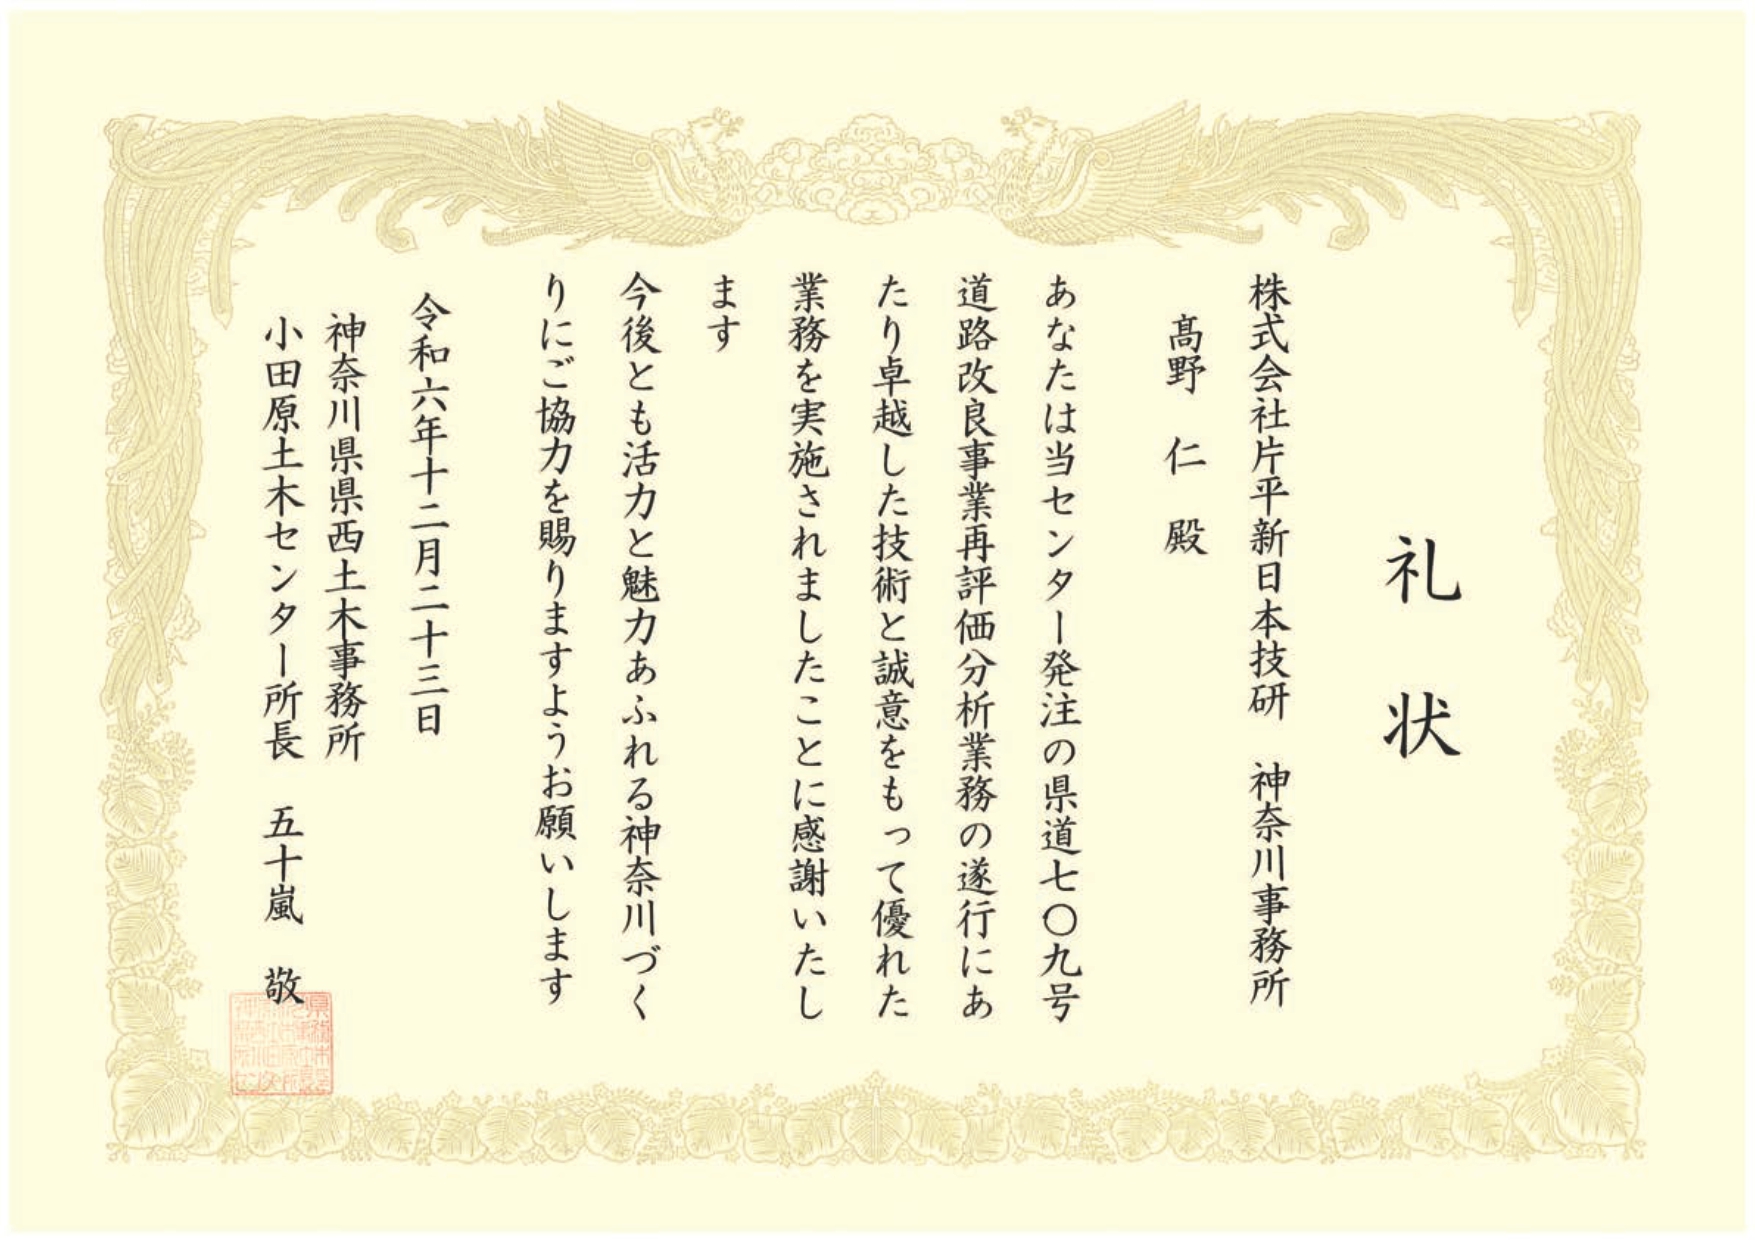 礼状
株式会社片平新日本技研　神奈川事務所
髙野　仁　殿
あなたは当センター発注の県道七〇九号
道路改良事業再評価分析業務の遂行にあ
たり卓越した技術と誠意をもって優れた
業務を実施されましたことに感謝いたし
ます
今後とも活力と魅力あふれる神奈川づく
りにご協力を賜りますようお願いします
令和六年十二月二十三日
神奈川県県西土木事務所
小田原土木センター所長　五十嵐　敬